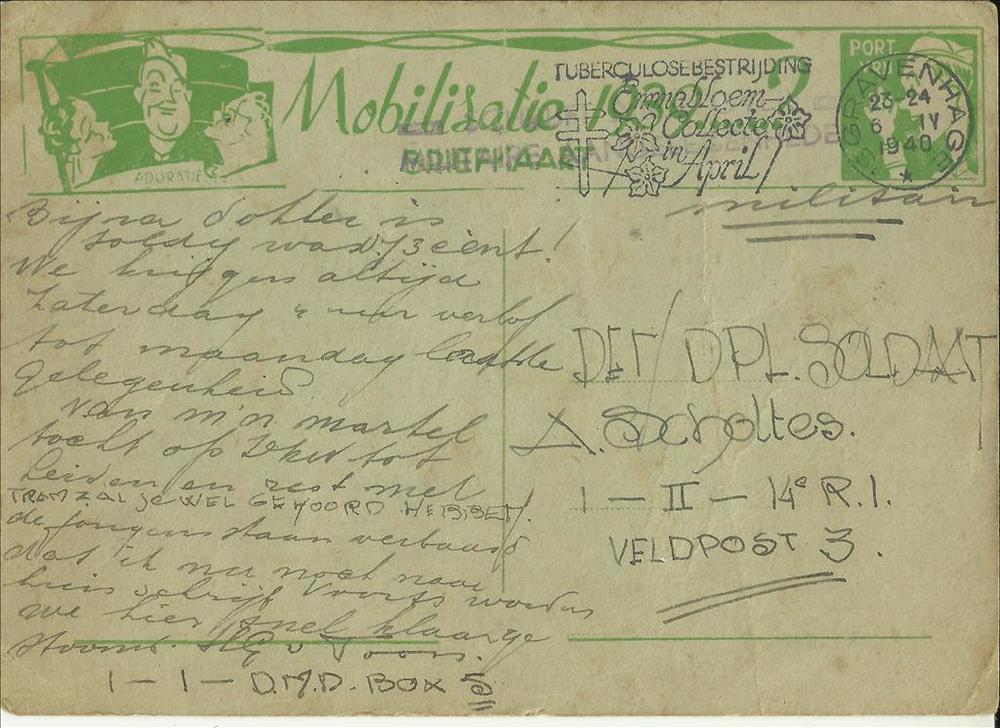 ADORATIE
Mobilisatie
BRIEFKAART
TUBERCULOSEBESTRIJDING
Emmabloem-
Collecte
in April
PORT
'S GRAVENHAGE
23-24
6 IV
1940
militair
Bijna dokter is
soldy was 73 cent!
We krijgen altijd
Zaterdag uur verlof
tot maandag laatste
gelegenheid.
Van m'n martel
tocht op tot
Leiden en rest met
TRAM ZAL JE WEL GEHOORD HEBBEN!
de jongens staan verbaasd
dat ik nu noch naar
huis schrijf Voorts worden
we hier snel klaarge
stoomd. Toon.
1-1- D.M.D. BOX 5
DET/ DPL. SOLDAAT
A. Scholtes.
1 — II — 14e R.I.
VELDPOST 3.